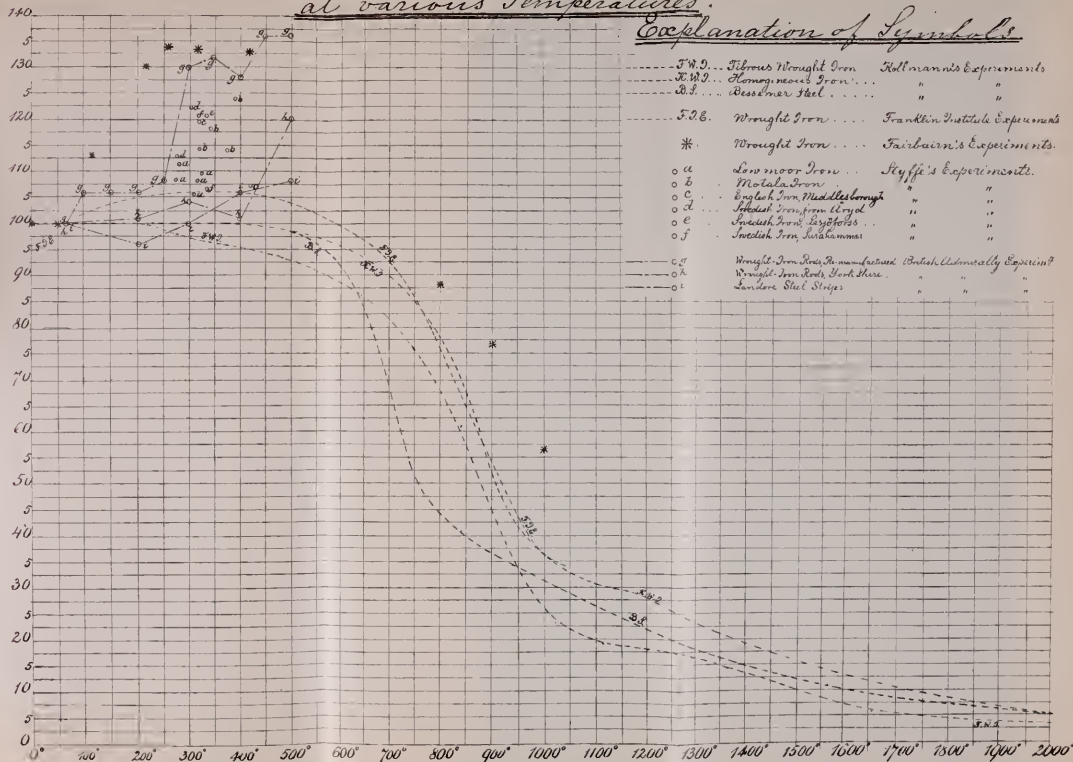 at various Temperatures.
Explanation of Symbols.
F.W.I... Fibrous Wrought Iron Kollmann's Experiments
H.W.I... Homogeneous Iron... " "
B.S.... Bessemer Steel..... " "
F.I.E. Wrought Iron.... Franklin Institute Experiments
* Wrought Iron.... Fairbairn's Experiments.
o a Low moor Iron... Styffe's Experiments.
o b Motala Iron " "
o c English Iron, Middlesborough " "
o d Swedish Iron, from Aryd " "
o e Swedish Iron, " "
o f Swedish Iron, Surahammar " "
o g Wrought-Iron Rods, Re-manufactured British Admiralty Experim'ts
o h Wrought-Iron Rods, Yorkshire. " " "
o i Landore Steel Strips " " "
140
5
130
5
120
5
110
5
100
5
90
5
80
5
70
5
60
5
50
5
40
5
30
5
20
5
10
5
0
0° 100° 200° 300° 400° 500° 600° 700° 800° 900° 1000° 1100° 1200° 1300° 1400° 1500° 1600° 1700° 1800° 1900° 2000°